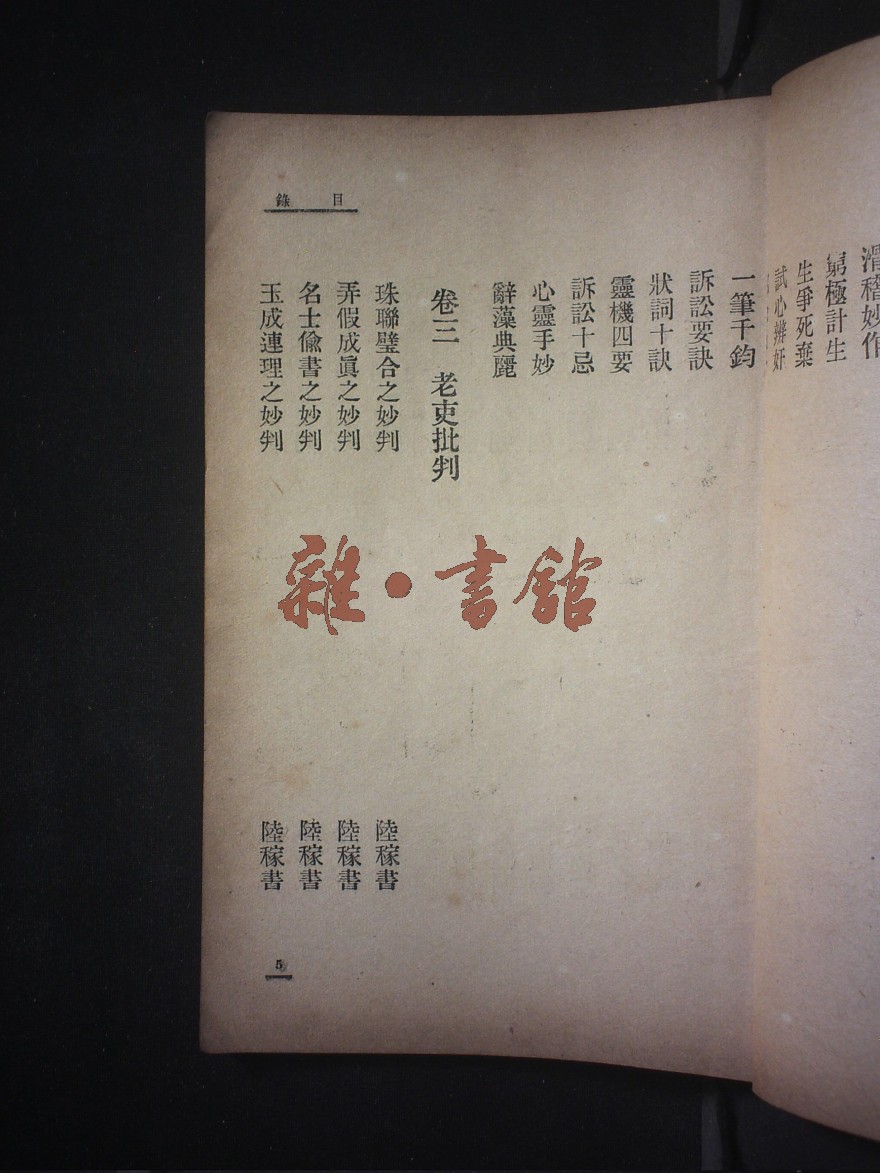 滑稽妙作
窮極計生
生爭死棄
試心辨奸
一筆千鈞
訴訟要訣
狀詞十訣
靈機四要
訴訟十忌
心靈手妙
辭藻典麗
卷三　老吏批判
珠聯璧合之妙判　陸稼書
弄假成眞之妙判　陸稼書
名士偸書之妙判　陸稼書
玉成連理之妙判　陸稼書
目錄
5
雜·書館